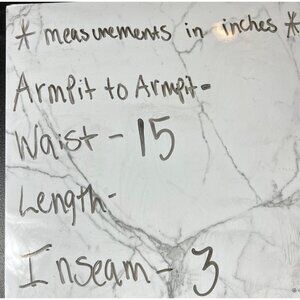 * measurements in inches *
Armpit to Armpit-
Waist - 15
Length-
Inseam - 3